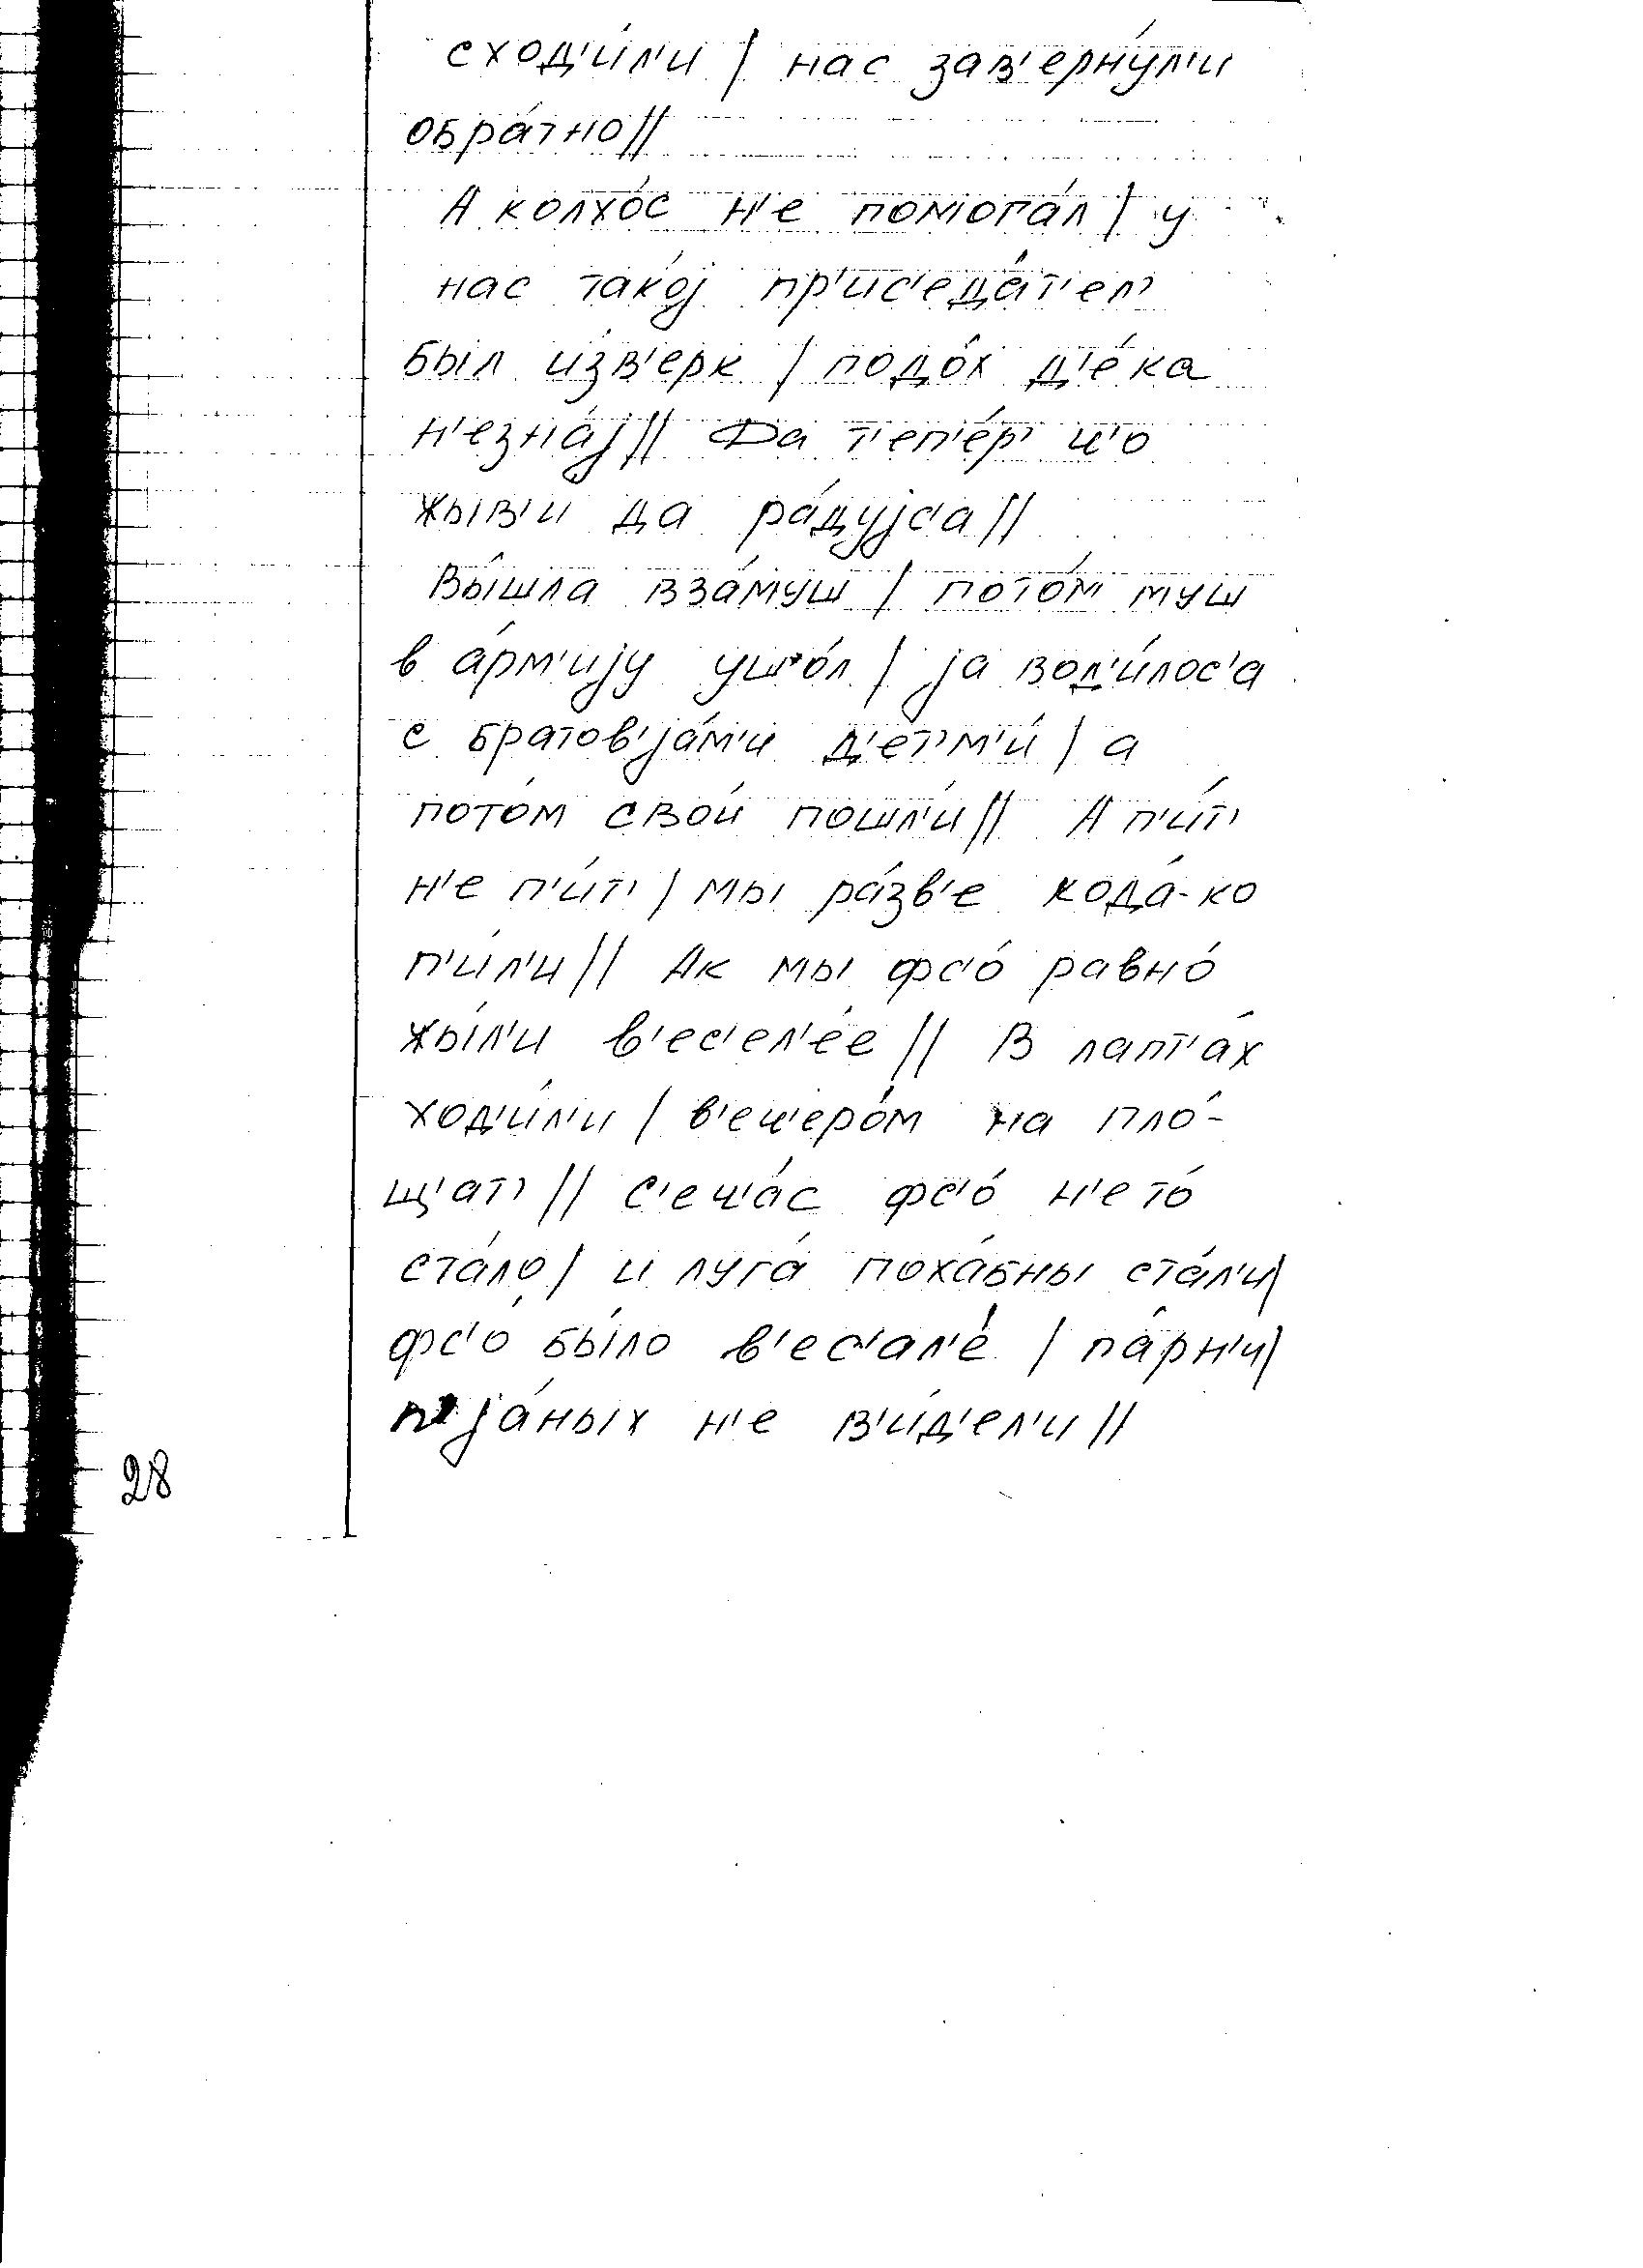 сход'и́л'и / нас зав'ерну́л'и
обра́тно //
А колхо́с н'е помога́л / у
нас тако́j пр'ис'еда́т'ел'
был и́зв'ерк / подо́х д'е́ка
н'езна́j // Да т'еп'е́р' ч'о
жыв'и да ра́дуjс'а //
Вы́шла вза́муш / пото́м муш
в а́рм'иjу уш'о́л / jа вод'и́лос'а
с братов'jа́м'и д'ет'м'и́ / а
пото́м свои́ пошл'и́ // А п'и́т'
н'е п'и́т' / мы ра́зв'е кода́-ко
п'и́л'и // Ак мы фс'о́ равно́
жы́л'и в'ес'ел'е́е // В лапт'а́х
ход'и́л'и / в'еч'еро́м на пло́-
щ'ат' // с'еч'а́с фс'о́ н'е то́
ста́ло / и луга́ поха́бны ста́л'и /
фс'о́ бы́ло в'ес'ал'е́ / па́рн'и /
п'jа́ных н'е в'и́д'ел'и //
28